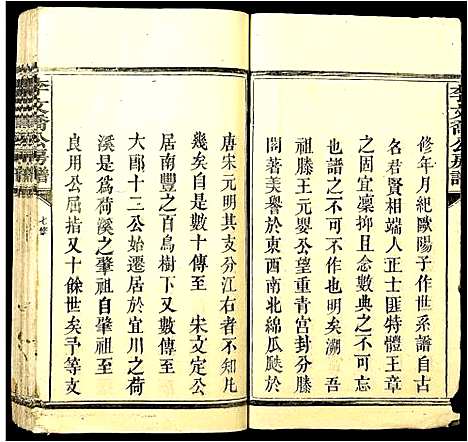 李文裔公房譜
修年月紀歐陽子作世系譜自古
名君賢相端人正士匪特體王章
固宜凜抑且念數典之不可忘
也譜之不可不作也明矣溯 吾
祖滕王元嬰公望重青宮封分滕
閣著美譽於東西南北綿瓜瓞於
唐宋元明其支分江右者不知凡
幾矣自是數十傳至 宋文定公
居南豐之百鳥樹下又數傳至
大郎十三公始遷居於宜川之荷
溪是為荷溪之肇祖自肇祖
良用公屈指又十餘世矣予等支
李文裔公房譜
七修